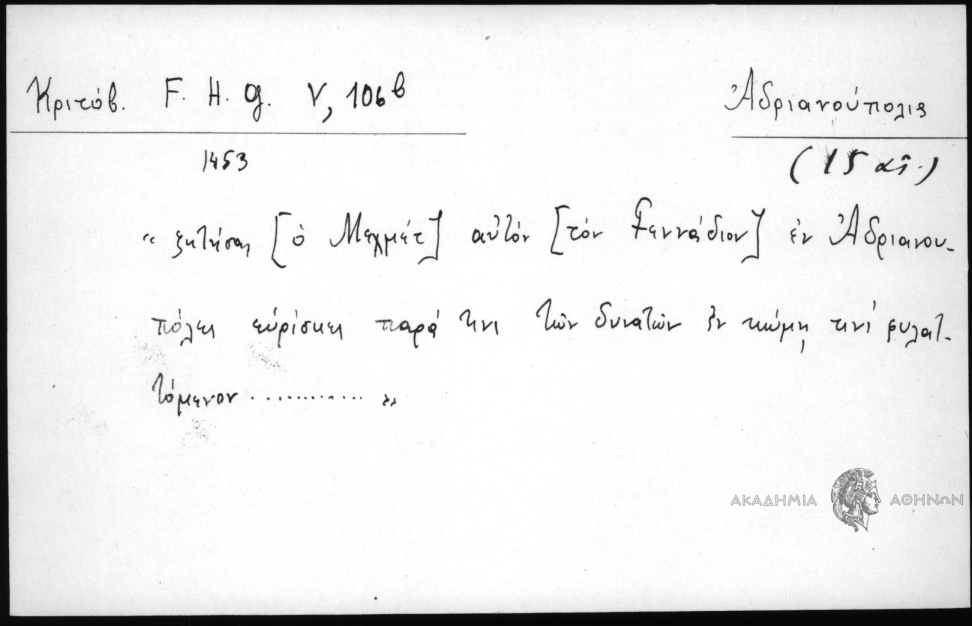 Κριτόβ. F. H. G. V, 106β
Ἀδριανούπολις
1453
(15 αἰ.)
« ζητήσας [ὁ Μεχμέτ] αὐτόν [τόν Γεννάδιον] ἐν Ἀδριανου-
πόλει εὑρίσκει παρά τινι τῶν δυνατῶν ἐν κώμῃ τινί φυλατ-
τόμενον ........... »
ΑΚΑΔΗΜΙΑ ΑΘΗΝΩΝ